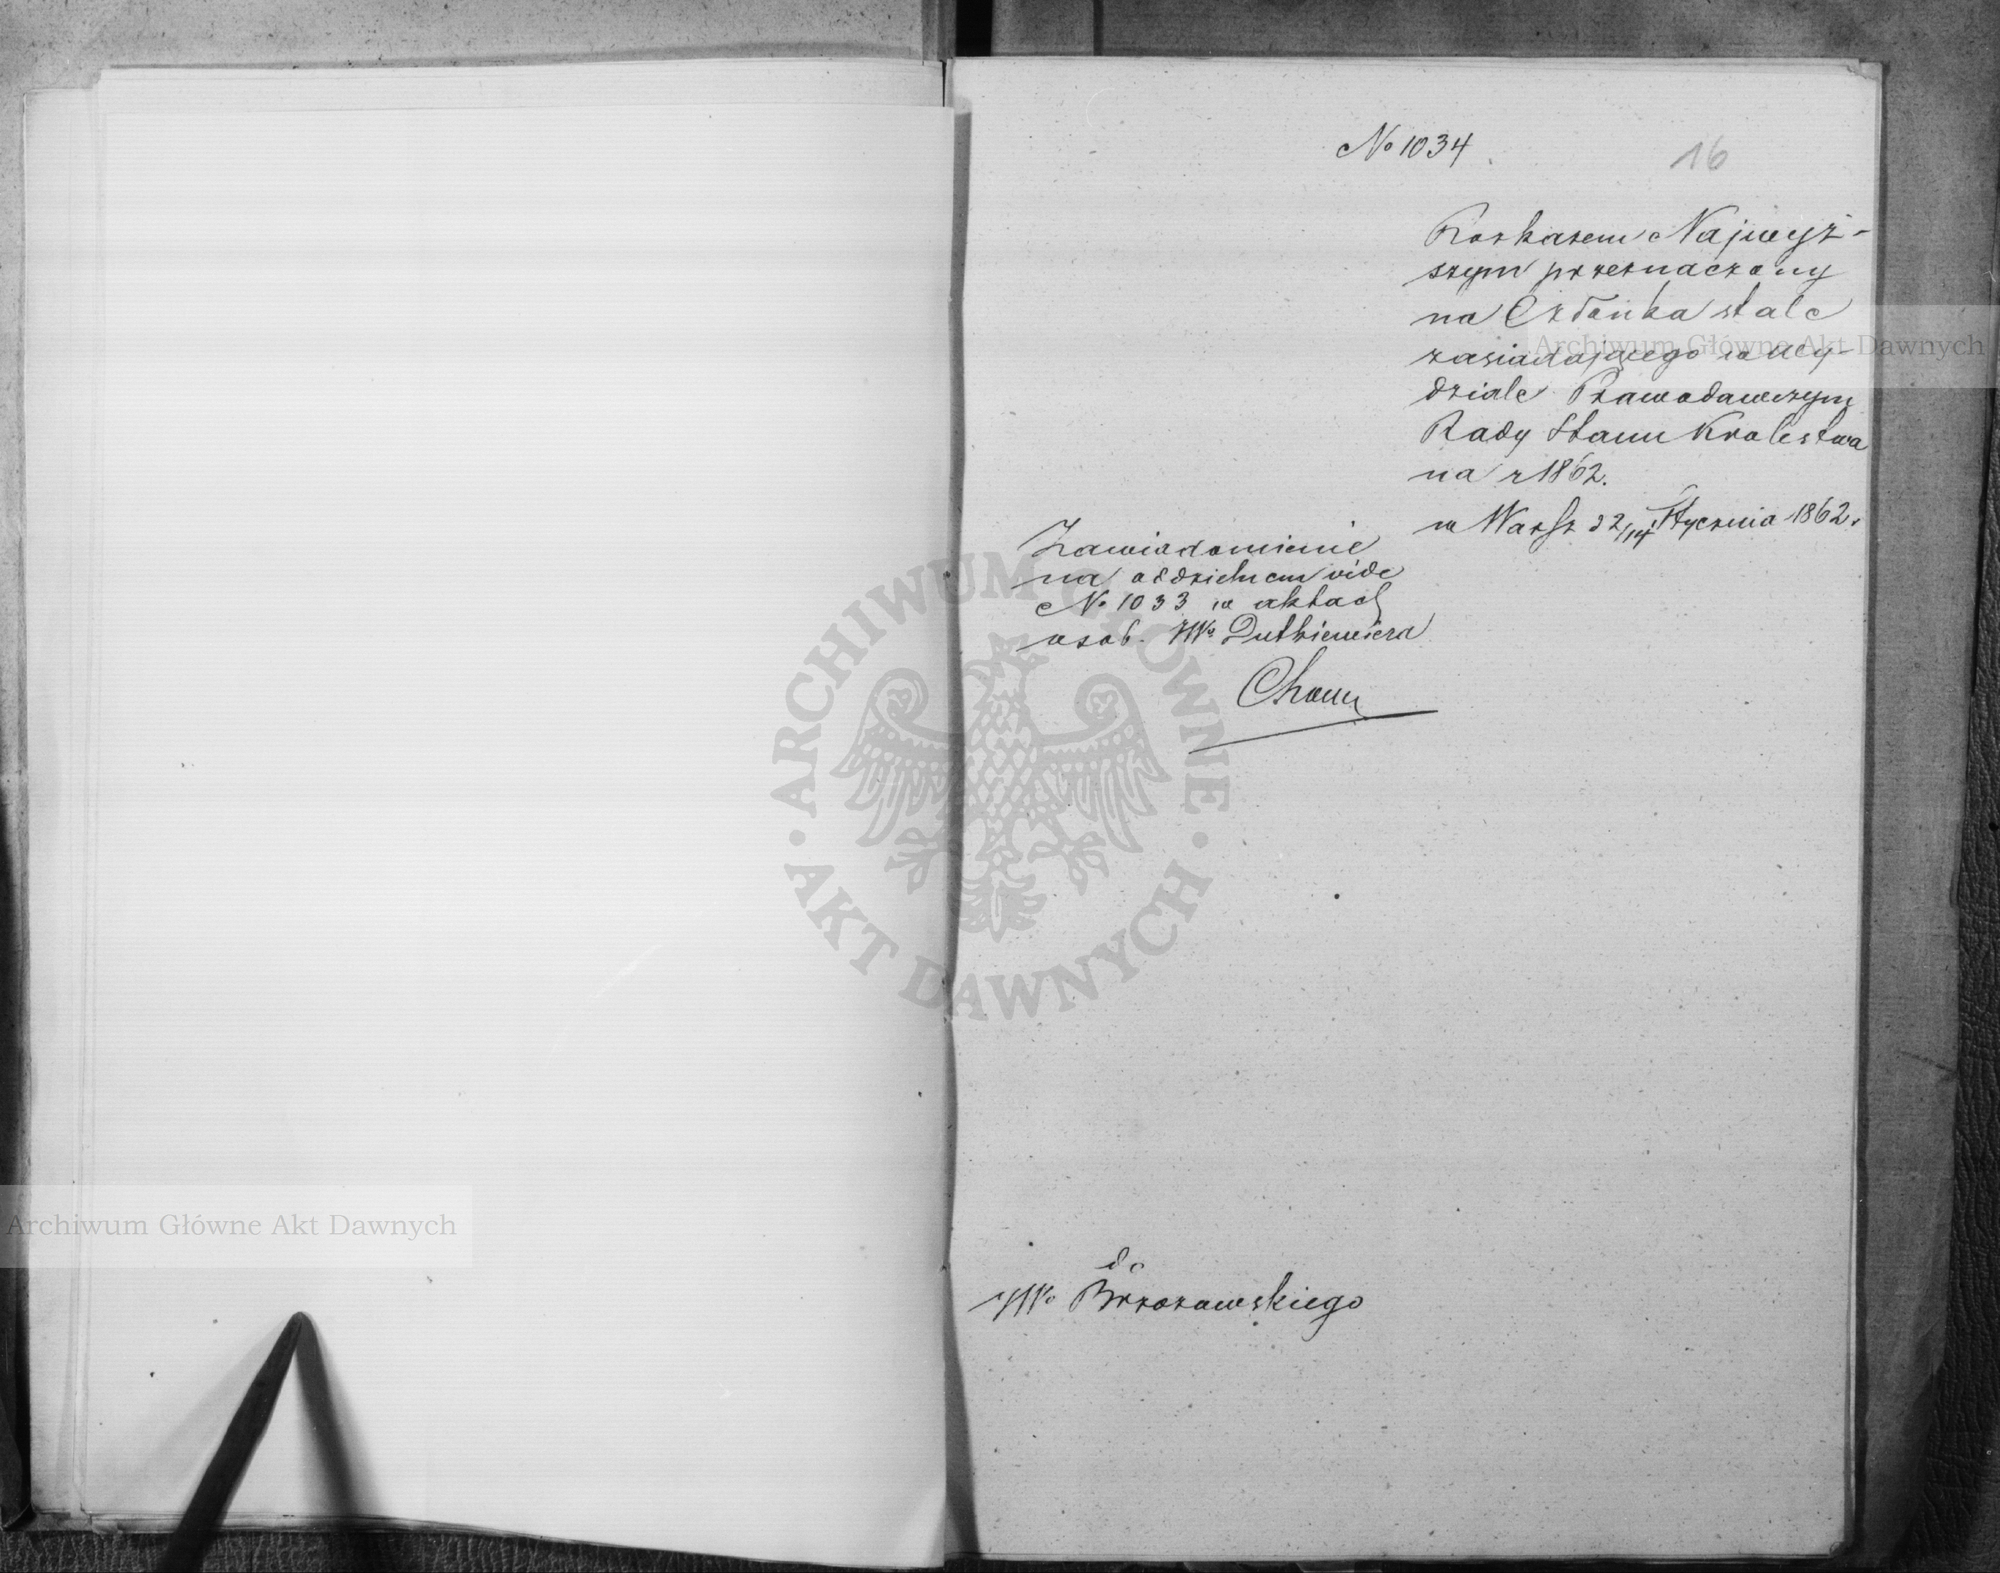 No 1034
16
Rozkazem Najwyż-
szym przeznaczony
na Członka stale
zasiadającego w Wy-
dziale Prawodawczym
Rady Stanu Krolestwa
na r 1862.
w Warsz 22/14 Stycznia 1862.
Zawiadomienie
na oddzielnem vide
No 1033 w aktach
osob. JWo Dutkiewicza
do
JWo Brzozowskiego
Archiwum Główne Akt Dawnych
Archiwum Główne Akt Dawnych
ARCHIWUM GŁÓWNE
AKT DAWNYCH